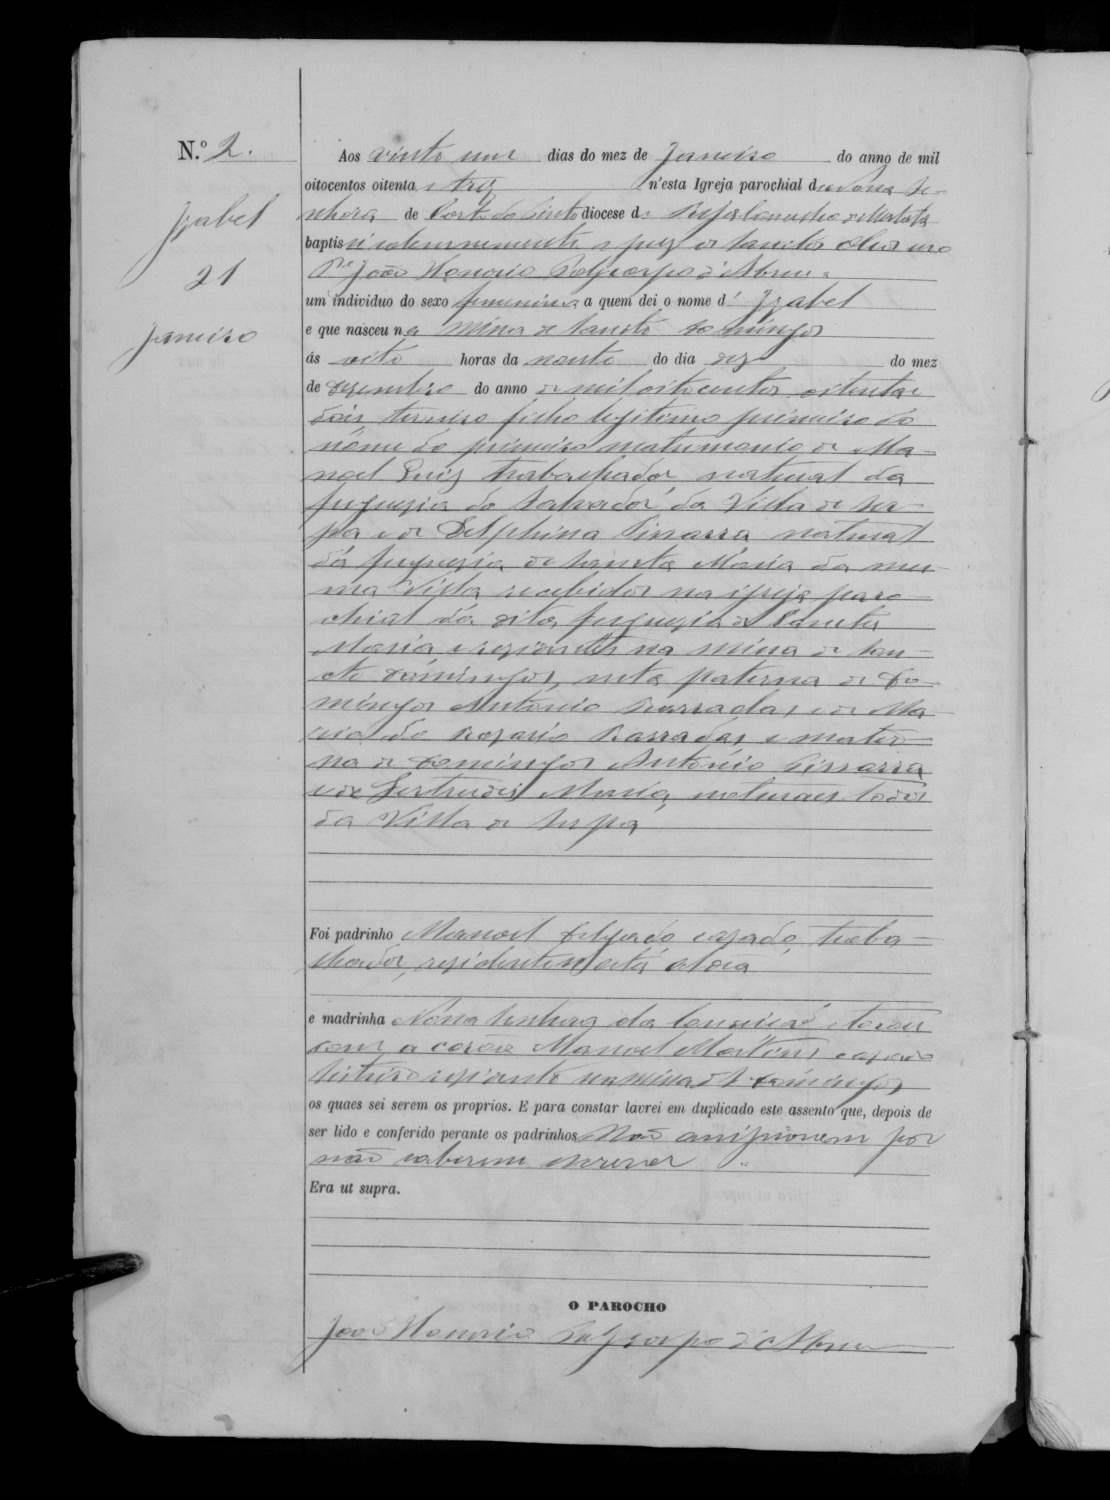 N.º 2.
Izabel
21
Janeiro
Aos vinte um dias do mez de Janeiro do anno de mil
oitocentos oitenta e trez n'esta Igreja parochial de Nossa Se-
nhora de diocese de
baptisei solemnemente e puz os sanctos oleos eu o
P.e João Honorio Polycarpo d'Abreu
um individuo do sexo femenino a quem dei o nome d' Izabel
e que nasceu na Mina de Sancto Domingos
ás oito horas da noute do dia dez do mez
de Dezembro do anno de mil oitocentos oitenta e
dois terceiro filho legitimo primeiro do
nome do primeiro matrimonio de Ma-
noel Luiz trabalhador, natural da
freguezia do Salvador da Villa de Ser-
pa e de Delphina Pissarra natural
da freguezia de Sancta Maria da mes-
ma Villa recebidos na igreja paro-
chial da dita freguezia de Sancta
Maria e rezidentes na Mina de San-
cto Domingos, neta paterna de Do-
mingos Antonio Barradas e de Ma-
ria do Rozario Barradas e mater-
na de Domingos Antonio Pissarra
e de Gertrudes Maria, naturaes todos
da Villa de Serpa
Foi padrinho Manoel Delgado cazado, traba-
lhador, rezidente n'esta aldeia
e madrinha Nossa Senhora da Conceição tocou
com a coroa Manoel Martins cazado
rezidente na Mina de S. Domingos
os quaes sei serem os proprios. E para constar lavrei em duplicado este assento que, depois de
ser lido e conferido perante os padrinhos Não assignaram por
não saberem escrever
Era ut supra.
O PAROCHO
João Honorio Polycarpo d'Abreu